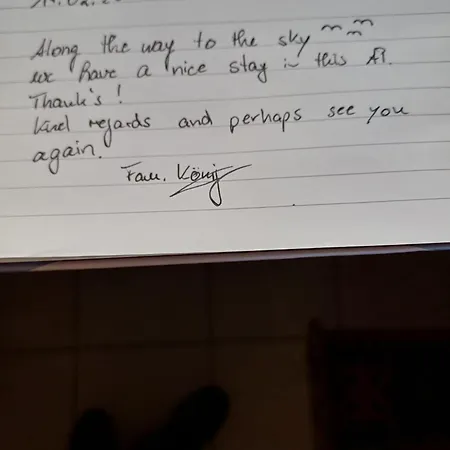 Along the way to the sky
we have a nice stay in this
Thank's!
Kind regards and perhaps see you
again.
Fam. König